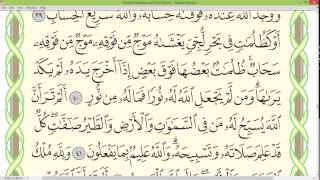 ووجد الله عنده فوفىه حسابه والله سريع الحساب ٣٩
أو كظلمت في بحر لجي يغشىه موج من فوقه موج من فوقه
سحاب ظلمت بعضها فوق بعض إذا أخرج يده لم يكد
يرىها ومن لم يجعل الله له نورا فما له من نور ٤٠ ألم تر أن
الله يسبح له من في السموت والأرض والطير صفت كل
قد علم صلاته وتسبيحه والله عليم بما يفعلون ٤١ ولله ملك